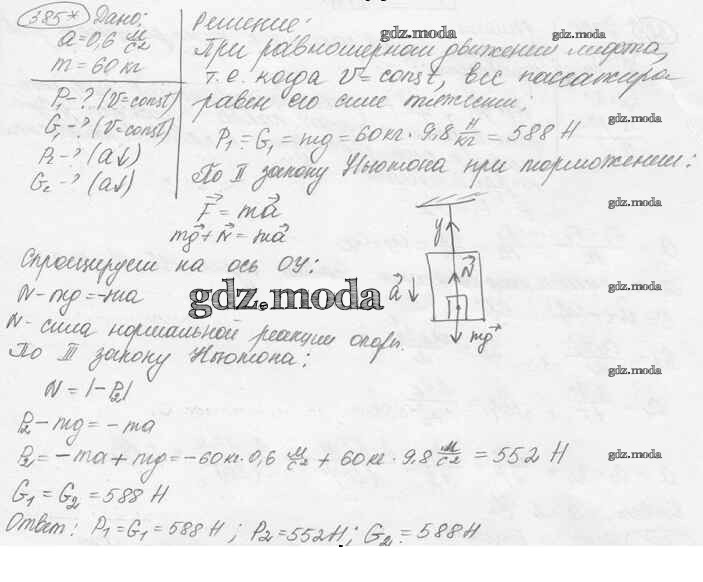 385* Дано:
a=0,6 м/с²
m=60 кг
P₁-? (V=const)
G₁-? (V=const)
P₂-? (a↓)
G₂-? (a↓)
Решение:
gdz.moda
При равномерном движении лифта,
gdz.moda
т.е. когда V=const, вес пассажира
равен его силе тяжести:
gdz.moda
P₁=G₁=mg=60кг·9,8 Н/кг=588 Н
По II закону Ньютона при торможении:
F⃗=ma⃗
gdz.moda
mg⃗+N⃗=ma⃗
y
N⃗
a⃗↓
mg⃗
Спроецируем на ось OY:
gdz.moda
N-mg=-ma
gdz.moda
N- сила нормальной реакции опоры.
По III закону Ньютона:
gdz.moda
N=|-P₂|
P₂-mg=-ma
P₂=-ma+mg=-60кг·0,6 м/с²+60кг·9,8 м/с²=552 Н
gdz.moda
G₁=G₂=588 Н
Ответ: P₁=G₁=588 Н; P₂=552Н; G₂=588Н